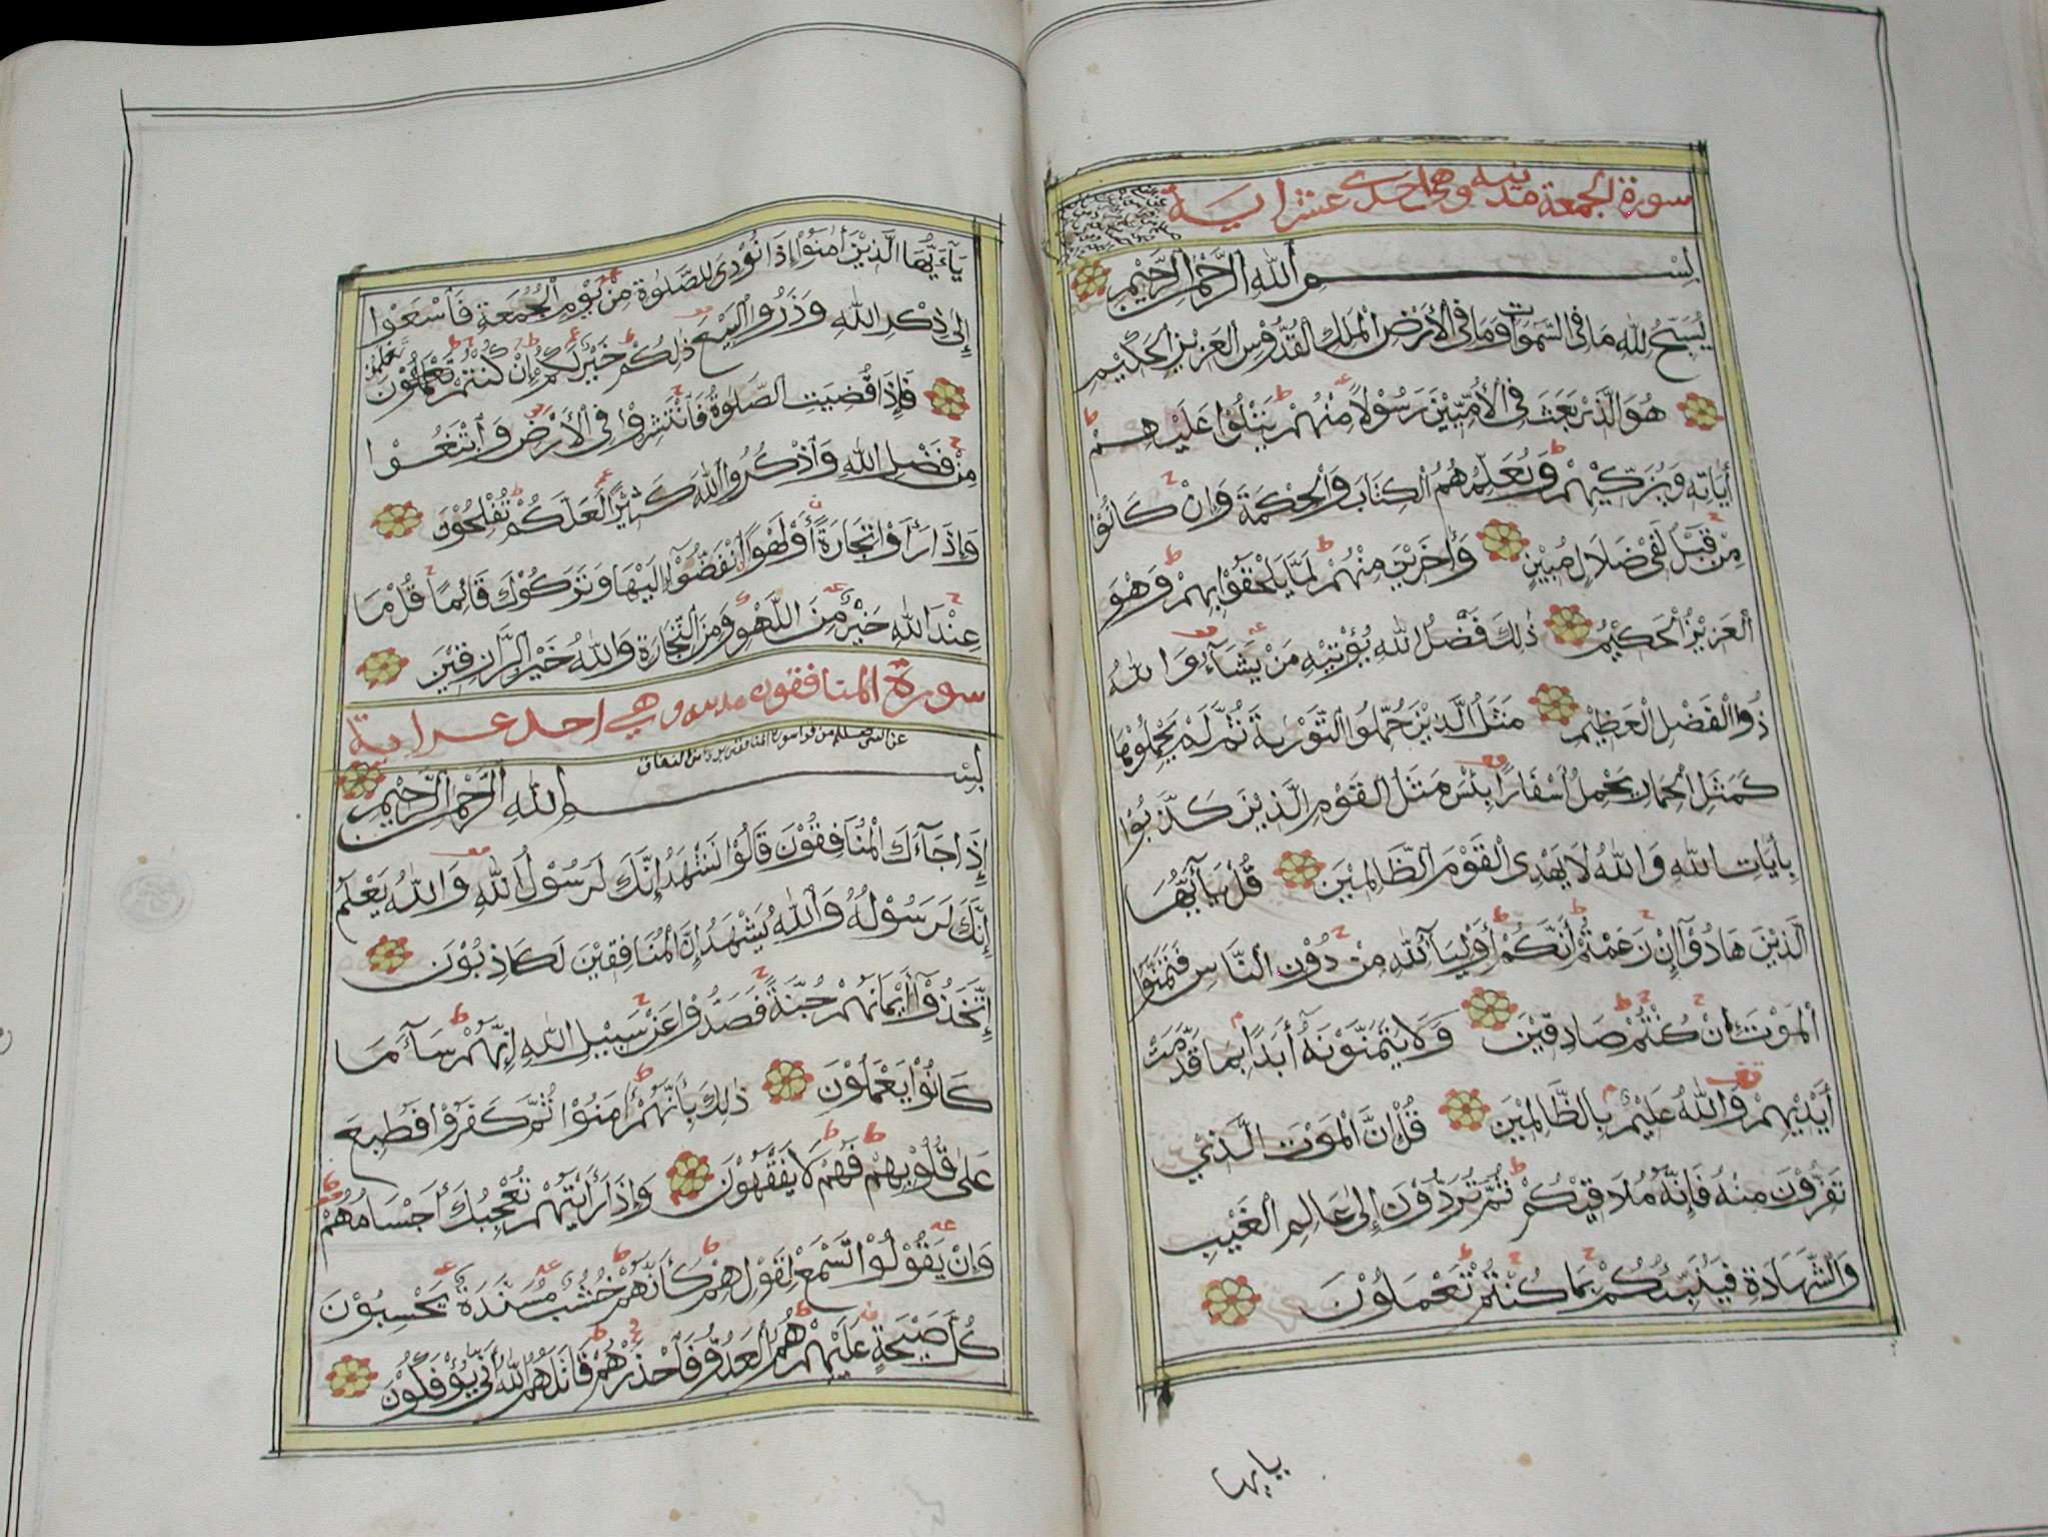 سورة الجمعة مدنيه وهي احدى عشر اية
بِسْمِ اللهِ الرَّحْمٰنِ الرَّحِيْمِ
يُسَبِّحُ لِلّٰهِ مَا فِى السَّمٰوَاتِ وَمَا فِى الْأَرْضِ الْمَلِكِ الْقُدُّوْسِ الْعَزِيْزِ الْحَكِيْمِ
هُوَ الَّذِىْ بَعَثَ فِى الْأُمِّيِّيْنَ رَسُوْلًا مِنْهُمْ يَتْلُوْا عَلَيْهِمْ
أٰيَاتِهٖ وَيُزَكِّيْهِمْ وَيُعَلِّمُهُمُ الْكِتَابَ وَالْحِكْمَةَ وَإِنْ كَانُوْا
مِنْ قَبْلُ لَفِىْ ضَلَالٍ مُبِيْنٍ وَأٰخَرِيْنَ مِنْهُمْ لَمَّا يَلْحَقُوْا بِهِمْ وَهُوَ
الْعَزِيْزُ الْحَكِيْمُ ذٰلِكَ فَضْلُ اللهِ يُؤْتِيْهِ مَنْ يَشَآءُ وَاللهُ
ذُوا الْفَضْلِ الْعَظِيْمِ مَثَلُ الَّذِيْنَ حُمِّلُوا التَّوْرٰيةَ ثُمَّ لَمْ يَحْمِلُوْهَا
كَمَثَلِ الْحِمَارِ يَحْمِلُ أَسْفَارًا بِئْسَ مَثَلُ الْقَوْمِ الَّذِيْنَ كَذَّبُوْا
بِأٰيَاتِ اللهِ وَاللهُ لَا يَهْدِى الْقَوْمَ الظَّالِمِيْنَ قُلْ يَآ أَيُّهَا
الَّذِيْنَ هَادُوْآ إِنْ زَعَمْتُمْ أَنَّكُمْ أَوْلِيَآءُ لِلّٰهِ مِنْ دُوْنِ النَّاسِ فَتَمَنَّوُا
الْمَوْتَ إِنْ كُنْتُمْ صَادِقِيْنَ وَلَا يَتَمَنَّوْنَهٗ أَبَدًا بِمَا قَدَّمَتْ
أَيْدِيْهِمْ وَاللهُ عَلِيْمٌ بِالظَّالِمِيْنَ قُلْ إِنَّ الْمَوْتَ الَّذِيْ
تَفِرُّوْنَ مِنْهُ فَإِنَّهٗ مُلَاقِيْكُمْ ثُمَّ تُرَدُّوْنَ إِلٰى عَالِمِ الْغَيْبِ
وَالشَّهَادَةِ فَيُنَبِّئُكُمْ بِمَا كُنْتُمْ تَعْمَلُوْنَ
يايها
يَآءَيُّهَا الَّذِيْنَ أٰمَنُوْآ إِذَا نُوْدِىَ لِلصَّلٰوةِ مِنْ يَوْمِ الْجُمُعَةِ فَاسْعَوْا
إِلٰى ذِكْرِ اللهِ وَذَرُوا الْبَيْعَ ذٰلِكُمْ خَيْرٌ لَكُمْ إِنْ كُنْتُمْ تَعْلَمُوْنَ
فَإِذَا قُضِيَتِ الصَّلٰوةُ فَانْتَشِرُوْا فِى الْأَرْضِ وَابْتَغُوْا
مِنْ فَضْلِ اللهِ وَاذْكُرُوا اللهَ كَثِيْرًا لَعَلَّكُمْ تُفْلِحُوْنَ
وَإِذَا رَأَوْا تِجَارَةً أَوْ لَهْوًا انْفَضُّوْآ إِلَيْهَا وَتَرَكُوْكَ قَائِمًا قُلْ مَا
عِنْدَ اللهِ خَيْرٌ مِنَ اللَّهْوِ وَمِنَ التِّجَارَةِ وَاللهُ خَيْرُ الرَّازِقِيْنَ
سورة المنافقون مدنيه وهي احد عشر اية
بِسْمِ اللهِ الرَّحْمٰنِ الرَّحِيْمِ
إِذَا جَآءَكَ الْمُنَافِقُوْنَ قَالُوْا نَشْهَدُ إِنَّكَ لَرَسُوْلُ اللهِ وَاللهُ يَعْلَمُ
إِنَّكَ لَرَسُوْلُهٗ وَاللهُ يَشْهَدُ إِنَّ الْمُنَافِقِيْنَ لَكَاذِبُوْنَ
إِتَّخَذُوْآ أَيْمَانَهُمْ جُنَّةً فَصَدُّوْا عَنْ سَبِيْلِ اللهِ إِنَّهُمْ سَآءَ مَا
كَانُوْا يَعْمَلُوْنَ ذٰلِكَ بِأَنَّهُمْ أٰمَنُوْا ثُمَّ كَفَرُوْا فَطُبِعَ
عَلٰى قُلُوْبِهِمْ فَهُمْ لَا يَفْقَهُوْنَ وَإِذَا رَأَيْتَهُمْ تُعْجِبُكَ أَجْسَامُهُمْ
وَإِنْ يَقُوْلُوْا تَسْمَعْ لِقَوْلِهِمْ كَأَنَّهُمْ خُشُبٌ مُسَنَّدَةٌ يَحْسِبُوْنَ
كُلَّ صَيْحَةٍ عَلَيْهِمْ هُمُ الْعَدُوُّ فَاحْذَرْهُمْ قَاتَلَهُمُ اللهُ أَنّٰى يُؤْفَكُوْنَ